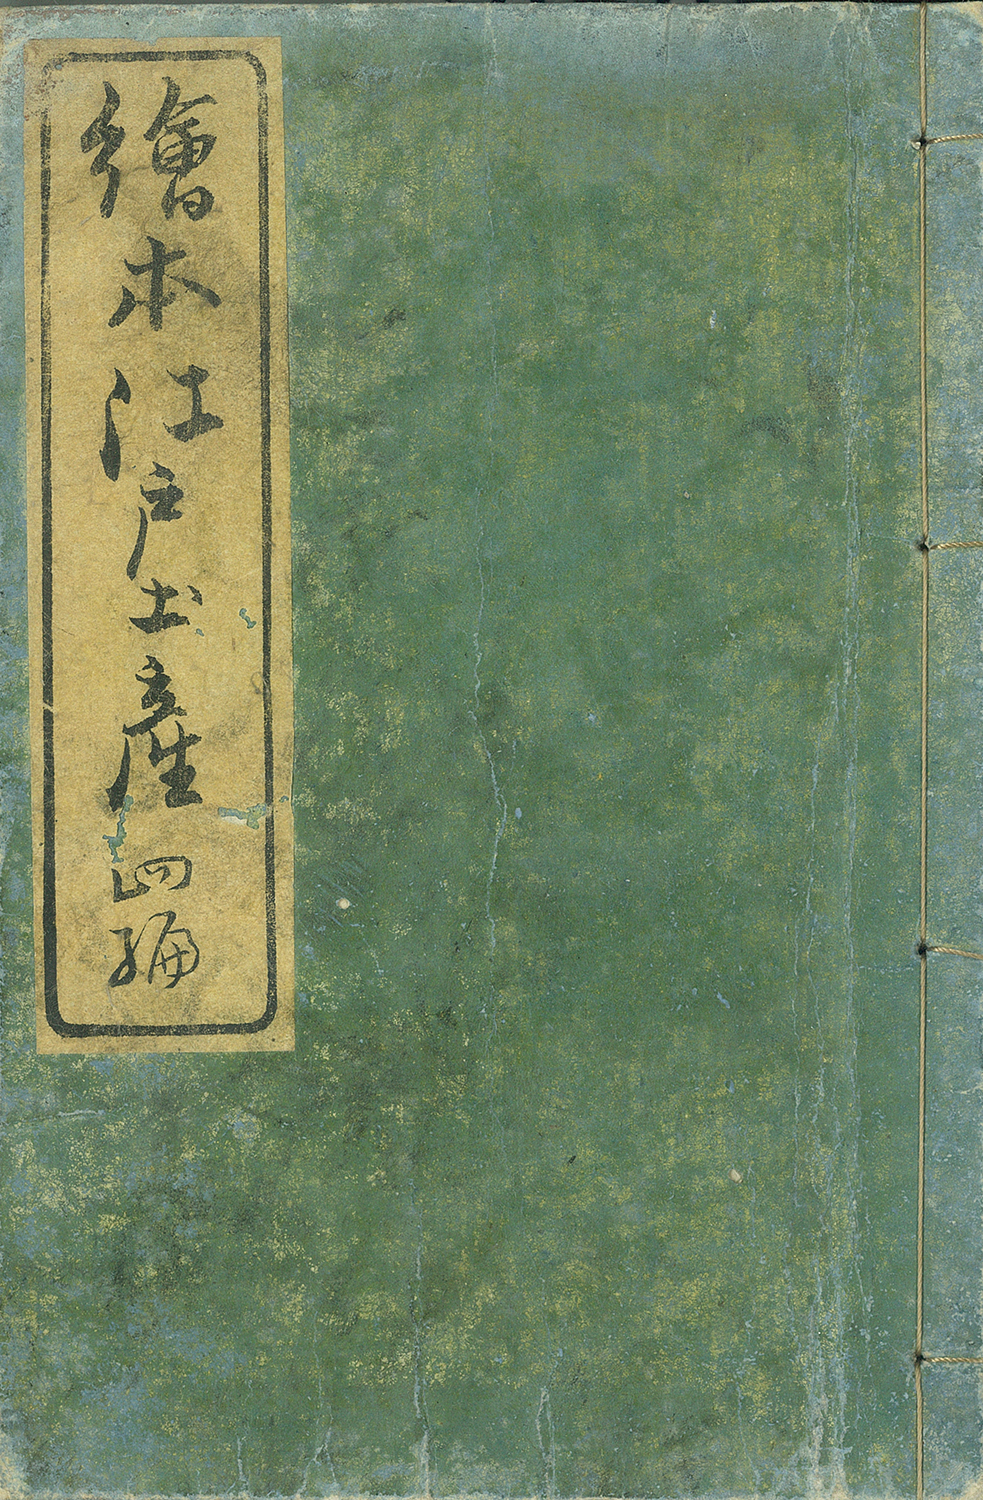 繪本江戸土産四編